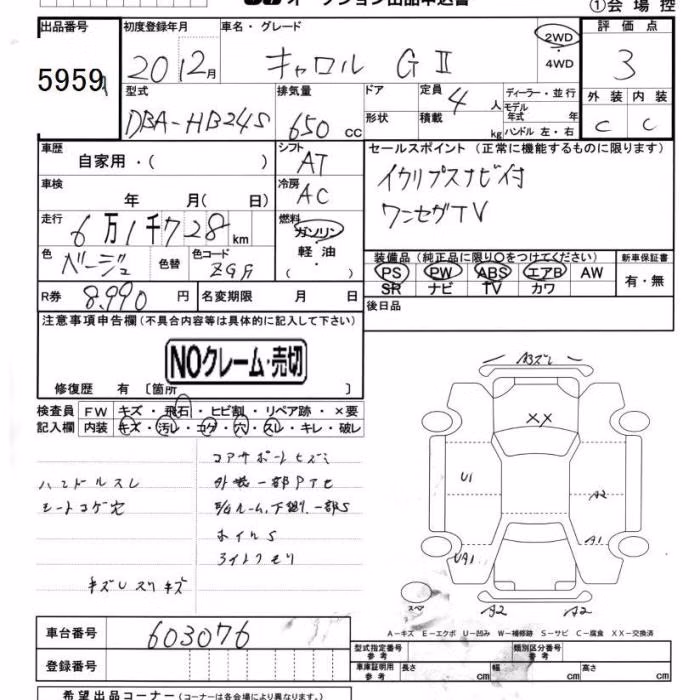 オークション出品申込書
①会場控
出品番号 初度登録年月 車名・グレード 2WD ・ 4WD 評価点
5959 2012月 キャロル GⅡ 3
型式 排気量 ドア 定員 ディーラー・並行 外装 内装
DBA-HB24S 650cc 形状 積載 4人 kg モデル年式 年 ハンドル 左・右 C C
車歴 自家用・( ) シフト AT セールスポイント (正常に機能するものに限ります)
車検 年 月( 日) 冷房 AC イクリプスナビ付
走行 6万1千728km 燃料 ガソリン ワンセグTV
色 ベージュ 色替 色コード 軽・油 ( )
装備品(純正品に限り○をつけてください) 新車保証書
PS PW ABS エアB AW 有・無
SR ナビ TV カワ
R券 8,990円 名変期限 月 日 後日品
注意事項申告欄(不具合内容等は具体的に記入して下さい)
NOクレーム・売切
修復歴 有 〔箇所 〕
検査員 FW キズ・飛石・ヒビ割・リペア跡・×要
記入欄 内装 キズ・汚レ・コゲ・穴・スレ・キレ・破レ
コアサポートヒズミ
ハンドルスレ 外装一部PTセ
シートコゲ穴
ホイルS
ライトクモリ
A3ズレ
XX
U1
A2
A1
UA1
スペ
A2 A2
A-キズ E-エクボ U-凹み W-補修跡 S-サビ C-腐食 XX-交換済
車台番号 603076
型式指定番号 参考 類別区分番号 参考
登録番号
車庫証明用 参考 長さ cm 幅 cm 高さ cm
希望出品コーナー(コーナーは各会場により異なります。)